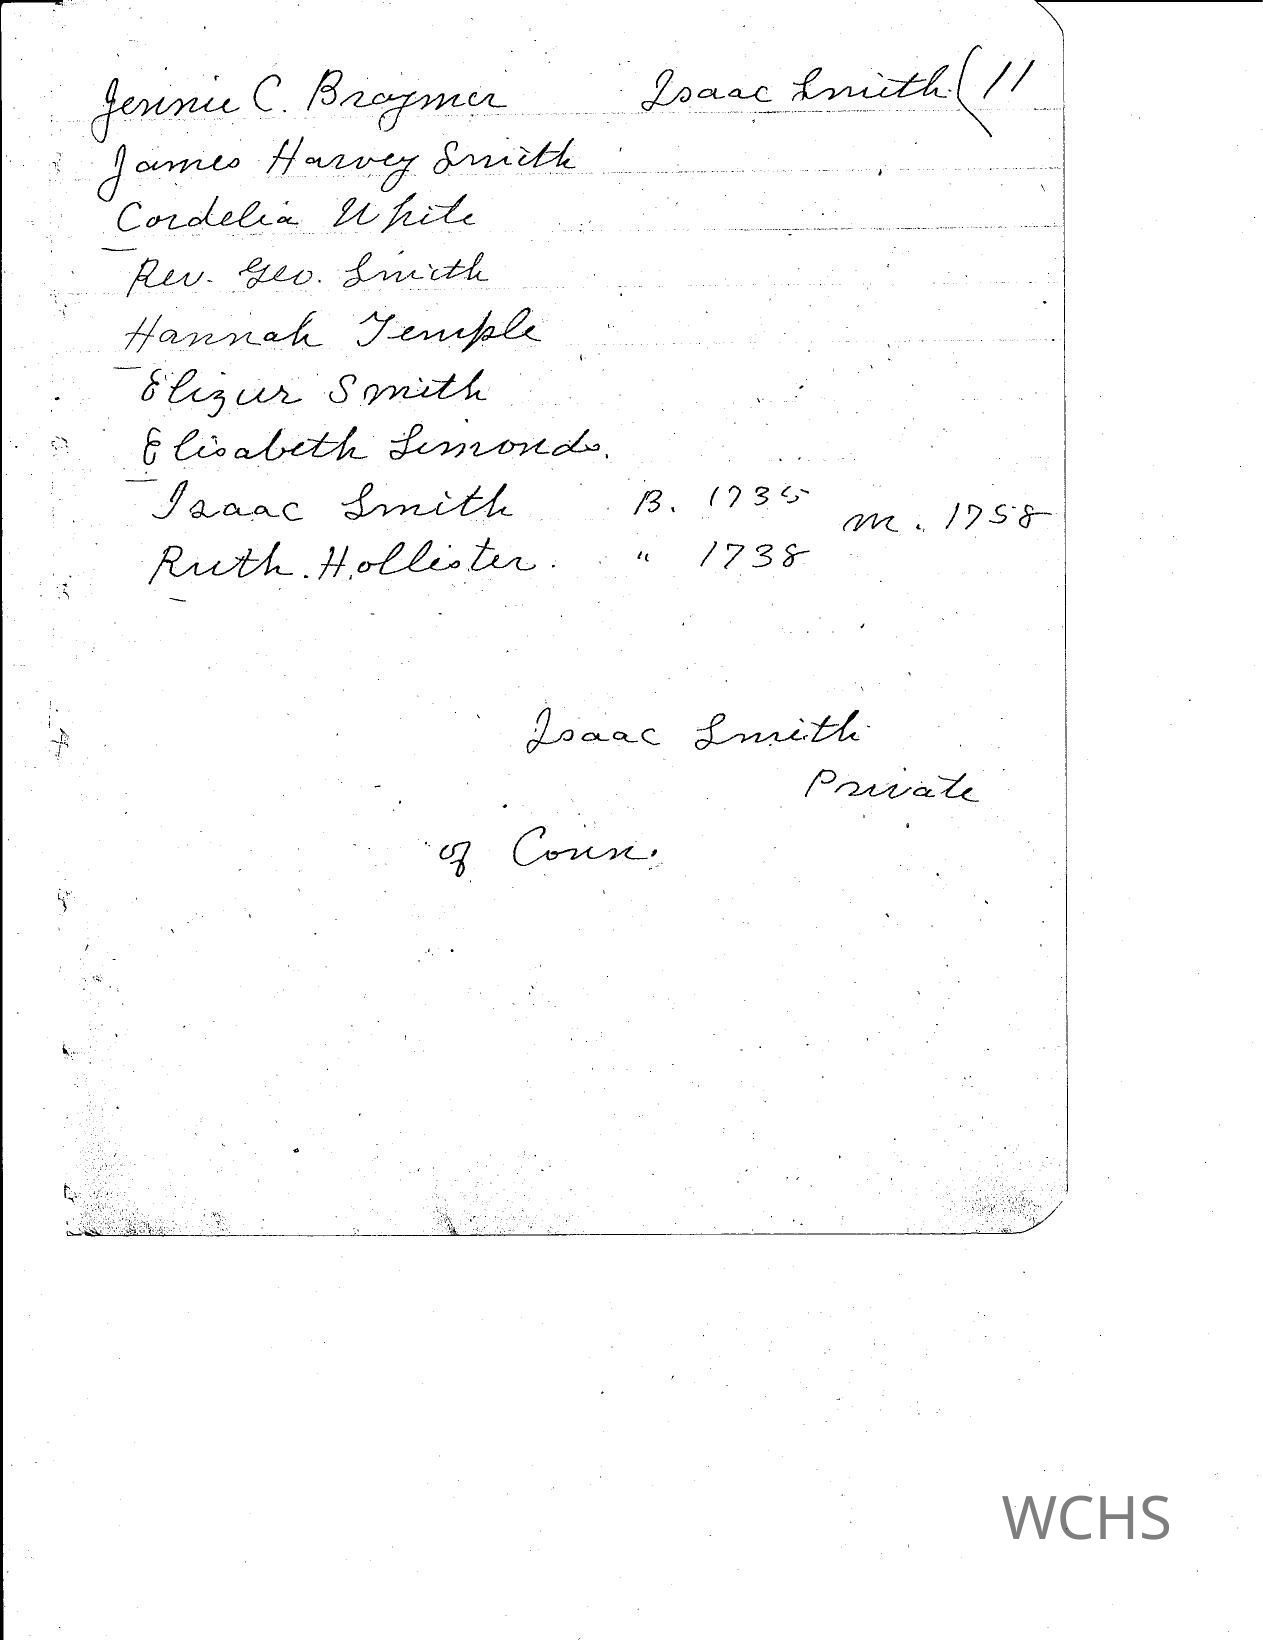 Jennie C. Braymer Isaac Smith (11
James Harvey Smith
Cordelia White
Rev. Geo. Smith
Hannah Temple
Elizur Smith
Elisabeth Simonds.
Isaac Smith B. 1735 m. 1758
Ruth. Hollister. " 1738
Isaac Smith
Private
of Conn.
WCHS